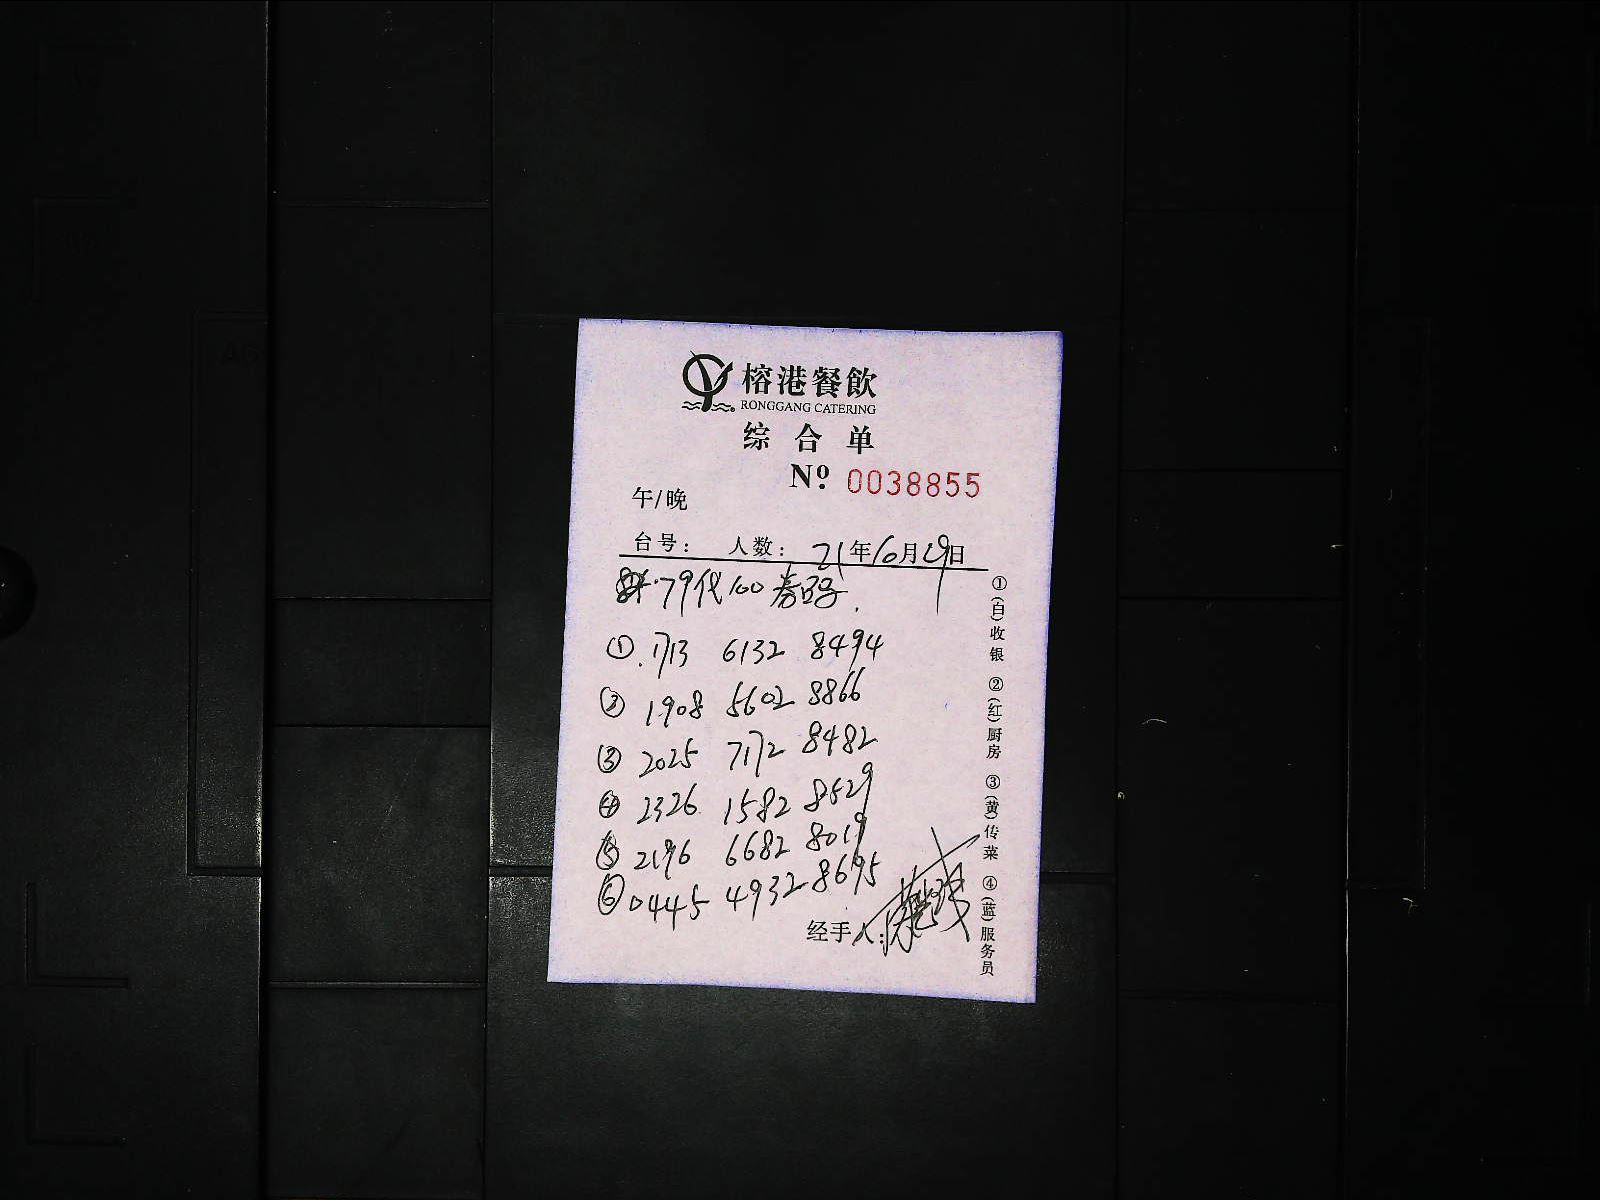 榕港餐飲
RONGGANG CATERING
综合单
Nº 0038855
午/晚
台号： 人数： 21年6月29日
79代100券码.
① 1713 6132 8494
② 1908 5602 8866
③ 2025 7172 8482
④ 2326 1582 8529
⑤ 2196 6682 8019
⑥ 0445 4932 8695
经手人：
①(白)收银 ②(红)厨房 ③(黄)传菜 ④(蓝)服务员